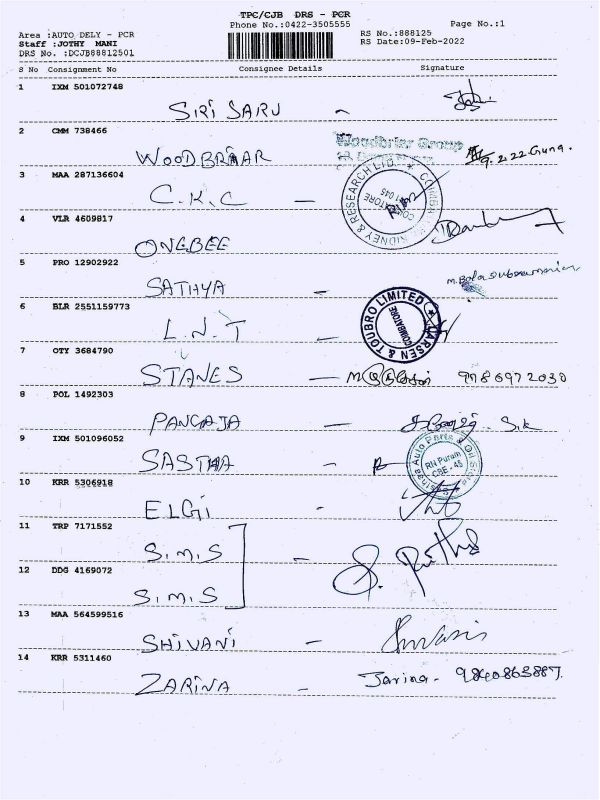 TPC/CJB DRS - PCR
Phone No.:0422-3505555
Page No.:1
Area :AUTO DELY - PCR
Staff :JOTHY MANI
DRS No. :DCJB88812501
RS No.:888125
RS Date:09-Feb-2022
S No Consignment No Consignee Details Signature
1 IXM 501072748
SIRI SARU -
2 CMM 738466
WOODBRIAR
Woodbriar Group
9.2.22 Guna.
3 MAA 287136604
C.K.C -
KIDNEY & RESEARCH LTD.
4 VLR 4609817
ONEBEE
5 PRO 12902922
SATHYA -
M. Balasubramanian
6 BLR 2551159773
L.N.T -
LARSEN & TOUBRO LIMITED
COIMBATORE
7 OTY 3684790
STANES - 9786972030
8 POL 1492303
PANGAJA -
9 IXM 501096052
SASTHA -
Auto Parts & Oil Store
RN Puram
CBE - 45
10 KRR 5306918
ELGI -
11 TRP 7171552
S.M.S -
12 DDG 4169072
S.M.S
13 MAA 564599516
SHIVANI -
14 KRR 5311460
ZARINA - Jarina - 9840863887.